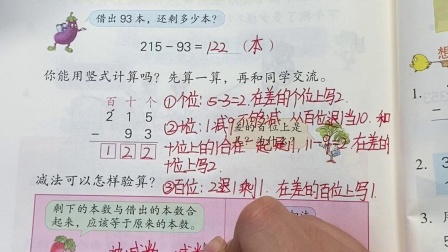 借出93本，还剩多少本？
215－93＝122（本）
你能用竖式计算吗？先算一算，再和同学交流。
百 十 个
2 1 5
－ 9 3
1 2 2
①个位：5-3=2.在差的个位上写2.
②十位：1减9不够减.从百位退1当10.和
十位上的1合在一起是11，11-9=2.在差的
十位上写2.
③百位：2退1剩1.在差的百位上写1.
减法可以怎样验算？
剩下的本数与借出的本数合
起来，应该等于原来的本数。
1.
2.